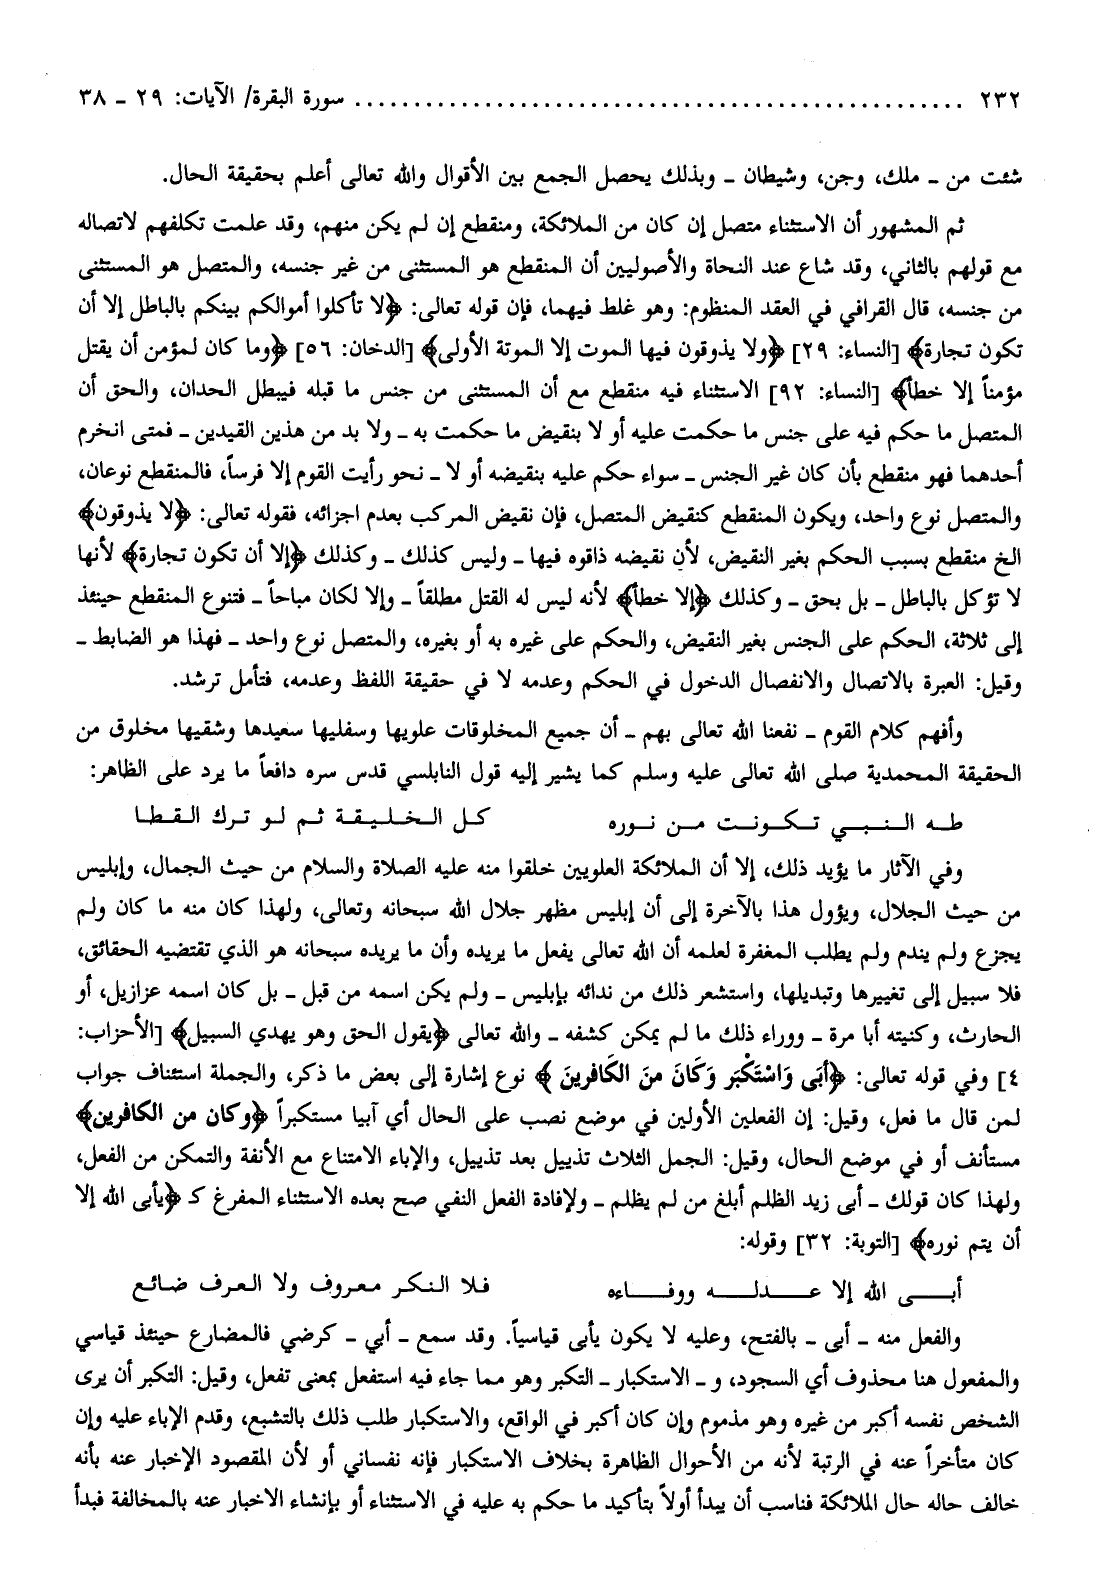 ٢٣٢ ........................................................ سورة البقرة/ الآيات: ٢٩ ـ ٣٨
شئت من ـ ملك، وجن، وشيطان ـ وبذلك يحصل الجمع بين الأقوال والله تعالى أعلم بحقيقة الحال.
ثم المشهور أن الاستثناء متصل إن كان من الملائكة، ومنقطع إن لم يكن منهم، وقد علمت تكلفهم لاتصاله
مع قولهم بالثاني، وقد شاع عند النحاة والأصوليين أن المنقطع هو المستثنى من غير جنسه، والمتصل هو المستثنى
من جنسه، قال القرافي في العقد المنظوم: وهو غلط فيهما، فإن قوله تعالى: ﴿لا تأكلوا أموالكم بينكم بالباطل إلا أن
تكون تجارة﴾ [النساء: ٢٩] ﴿ولا يذوقون فيها الموت إلا الموتة الأولى﴾ [الدخان: ٥٦] ﴿وما كان لمؤمن أن يقتل
مؤمناً إلا خطأ﴾ [النساء: ٩٢] الاستثناء فيه منقطع مع أن المستثنى من جنس ما قبله فيبطل الحدان، والحق أن
المتصل ما حكم فيه على جنس ما حكمت عليه أو لا بنقيض ما حكمت به ـ ولا بد من هذين القيدين ـ فمتى انخرم
أحدهما فهو منقطع بأن كان غير الجنس ـ سواء حكم عليه بنقيضه أو لا ـ نحو رأيت القوم إلا فرساً، فالمنقطع نوعان،
والمتصل نوع واحد، ويكون المنقطع كنقيض المتصل، فإن نقيض المركب بعدم اجزائه، فقوله تعالى: ﴿لا يذوقون﴾
الخ منقطع بسبب الحكم بغير النقيض، لأن نقيضه ذاقوه فيها ـ وليس كذلك ـ وكذلك ﴿إلا أن تكون تجارة﴾ لأنها
لا تؤكل بالباطل ـ بل بحق ـ وكذلك ﴿إلا خطأ﴾ لأنه ليس له القتل مطلقاً ـ وإلا لكان مباحاً ـ فتنوع المنقطع حينئذ
إلى ثلاثة، الحكم على الجنس بغير النقيض، والحكم على غيره به أو بغيره، والمتصل نوع واحد ـ فهذا هو الضابط ـ
وقيل: العبرة بالاتصال والانفصال الدخول في الحكم وعدمه لا في حقيقة اللفظ وعدمه، فتأمل ترشد.
وأفهم كلام القوم ـ نفعنا الله تعالى بهم ـ أن جميع المخلوقات علويها وسفليها سعيدها وشقيها مخلوق من
الحقيقة المحمدية صلى الله تعالى عليه وسلم كما يشير إليه قول النابلسي قدس سره دافعاً ما يرد على الظاهر:
طـه الـنـبـي تـكـونـت مـن نـوره كـل الـخـلـيـقـة ثـم لـو تـرك الـقـطـا
وفي الآثار ما يؤيد ذلك، إلا أن الملائكة العلويين خلقوا منه عليه الصلاة والسلام من حيث الجمال، وإبليس
من حيث الجلال، ويؤول هذا بالآخرة إلى أن إبليس مظهر جلال الله سبحانه وتعالى، ولهذا كان منه ما كان ولم
يجزع ولم يندم ولم يطلب المغفرة لعلمه أن الله تعالى يفعل ما يريده وأن ما يريده سبحانه هو الذي تقتضيه الحقائق،
فلا سبيل إلى تغييرها وتبديلها، واستشعر ذلك من ندائه بإبليس ـ ولم يكن اسمه من قبل ـ بل كان اسمه عزازيل، أو
الحارث، وكنيته أبا مرة ـ ووراء ذلك ما لم يمكن كشفه ـ والله تعالى ﴿يقول الحق وهو يهدي السبيل﴾ [الأحزاب:
٤] وفي قوله تعالى: ﴿أَبَى وَاسْتَكْبَر وَكَانَ منَ الكَافرينَ ﴾ نوع إشارة إلى بعض ما ذكر، والجملة استئناف جواب
لمن قال ما فعل، وقيل: إن الفعلين الأولين في موضع نصب على الحال أي آبيا مستكبراً ﴿وكان من الكافرين﴾
مستأنف أو في موضع الحال، وقيل: الجمل الثلاث تذييل بعد تذييل، والإباء الامتناع مع الأنفة والتمكن من الفعل،
ولهذا كان قولك ـ أبى زيد الظلم أبلغ من لم يظلم ـ ولإفادة الفعل النفي صح بعده الاستثناء المفرغ كـ ﴿يأبى الله إلا
أن يتم نوره﴾ [التوبة: ٣٢] وقوله:
أبـــى الله إلا عـــدلـــه ووفـــاءه فـلا الـنـكـر مـعـروف ولا الـعـرف ضـائـع
والفعل منه ـ أبى ـ بالفتح، وعليه لا يكون يأبى قياسياً. وقد سمع ـ أبي ـ كرضي فالمضارع حينئذ قياسي
والمفعول هنا محذوف أي السجود، و ـ الاستكبار ـ التكبر وهو مما جاء فيه استفعل بمعنى تفعل، وقيل: التكبر أن يرى
الشخص نفسه أكبر من غيره وهو مذموم وإن كان أكبر في الواقع، والاستكبار طلب ذلك بالتشبع، وقدم الإباء عليه وإن
كان متأخراً عنه في الرتبة لأنه من الأحوال الظاهرة بخلاف الاستكبار فإنه نفساني أو لأن المقصود الإخبار عنه بأنه
خالف حاله حال الملائكة فناسب أن يبدأ أولاً بتأكيد ما حكم به عليه في الاستثناء أو بإنشاء الاخبار عنه بالمخالفة فبدأ